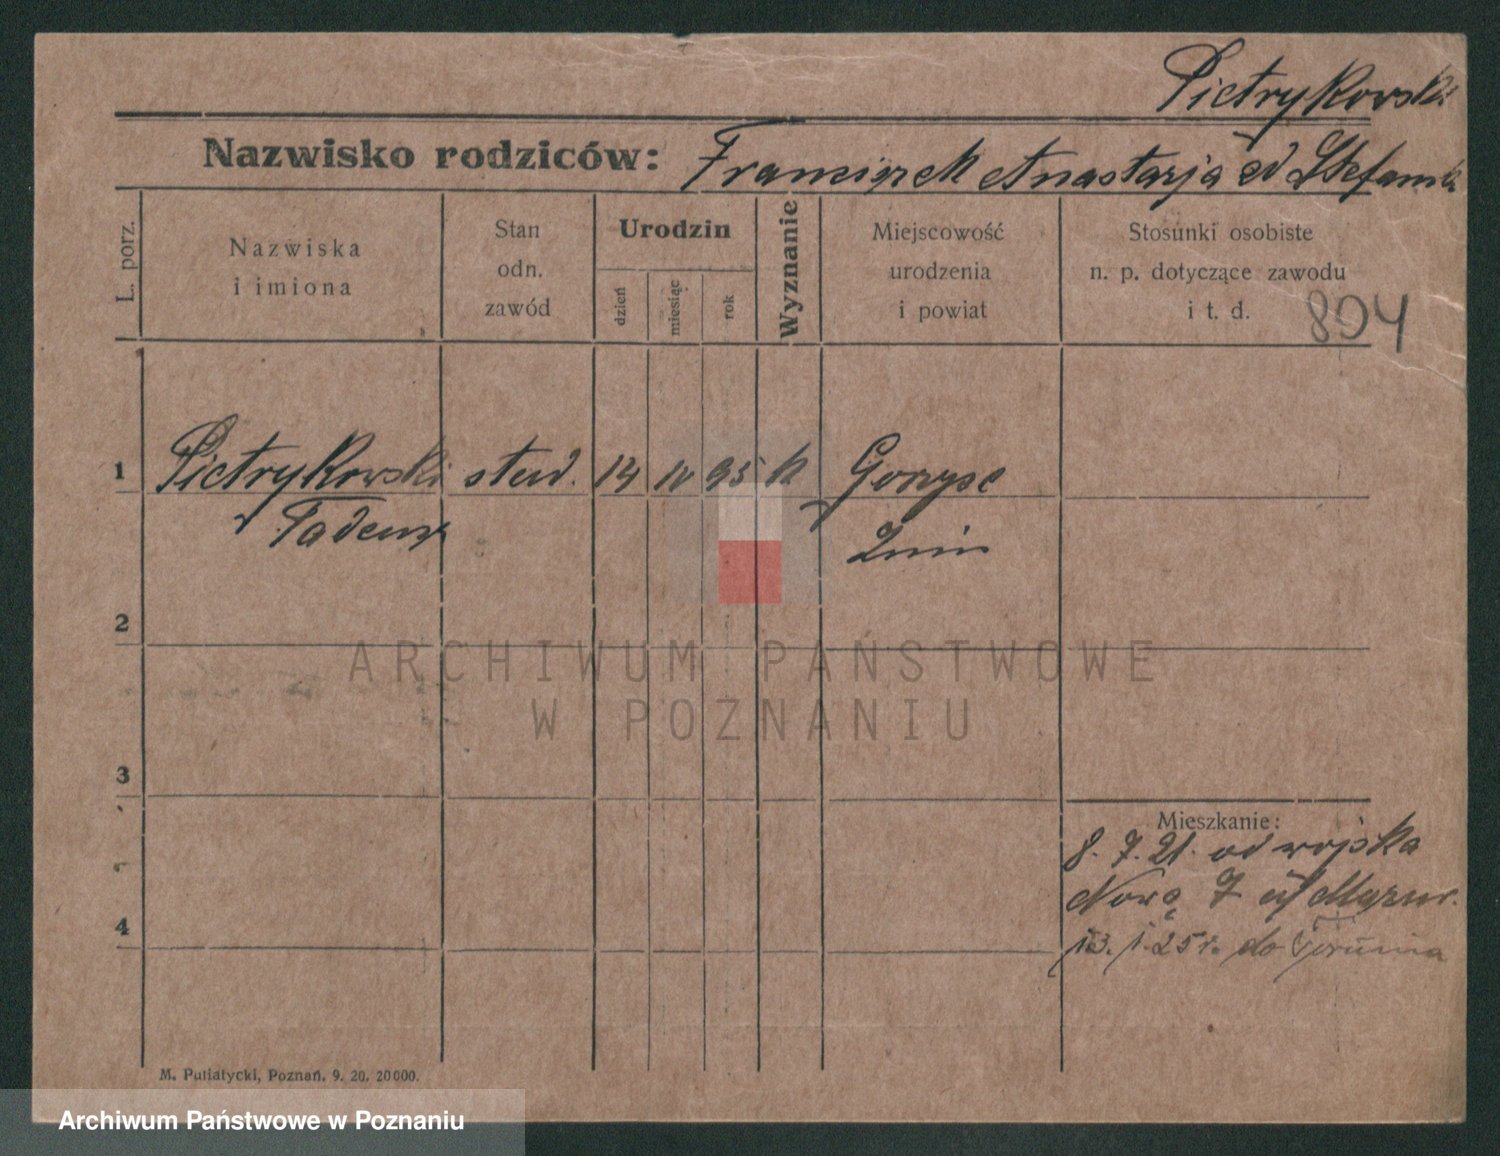 Pietrykowski
Nazwisko rodziców: Franciszek Anastazja
L. porz.
Nazwiska
i imiona
Stan
odn.
zawód
Urodzin
dzień
miesiąc
rok
Wyznanie
Miejscowość
urodzenia
i powiat
Stosunki osobiste
n. p. dotyczące zawodu
i t. d.
804
1 Pietrykowski stud. 14 IV 95 k
Tadeusz Żnin
2
ARCHIWUM PAŃSTWOWE
W POZNANIU
3
Mieszkanie:
8. 7. 21. od wojska
7
4
13. 1. 25 r. do Torunia
M. Putiatycki, Poznań. 9. 20. 20000.
Archiwum Państwowe w Poznaniu